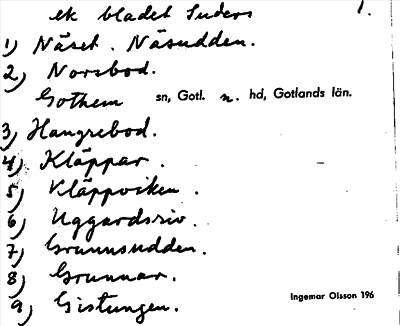 ek bladet Suders 1.
1) Näset. Näsudden.
2) Norsbod.
Gothem sn, Gotl. n. hd, Gotlands län.
3) Hangrebod.
4) Kläppar.
5) Kläppviken.
6) Uggardsriv.
7) Grunnsudden.
8) Grunnar.
9) Gistungen.
Ingemar Olsson 196